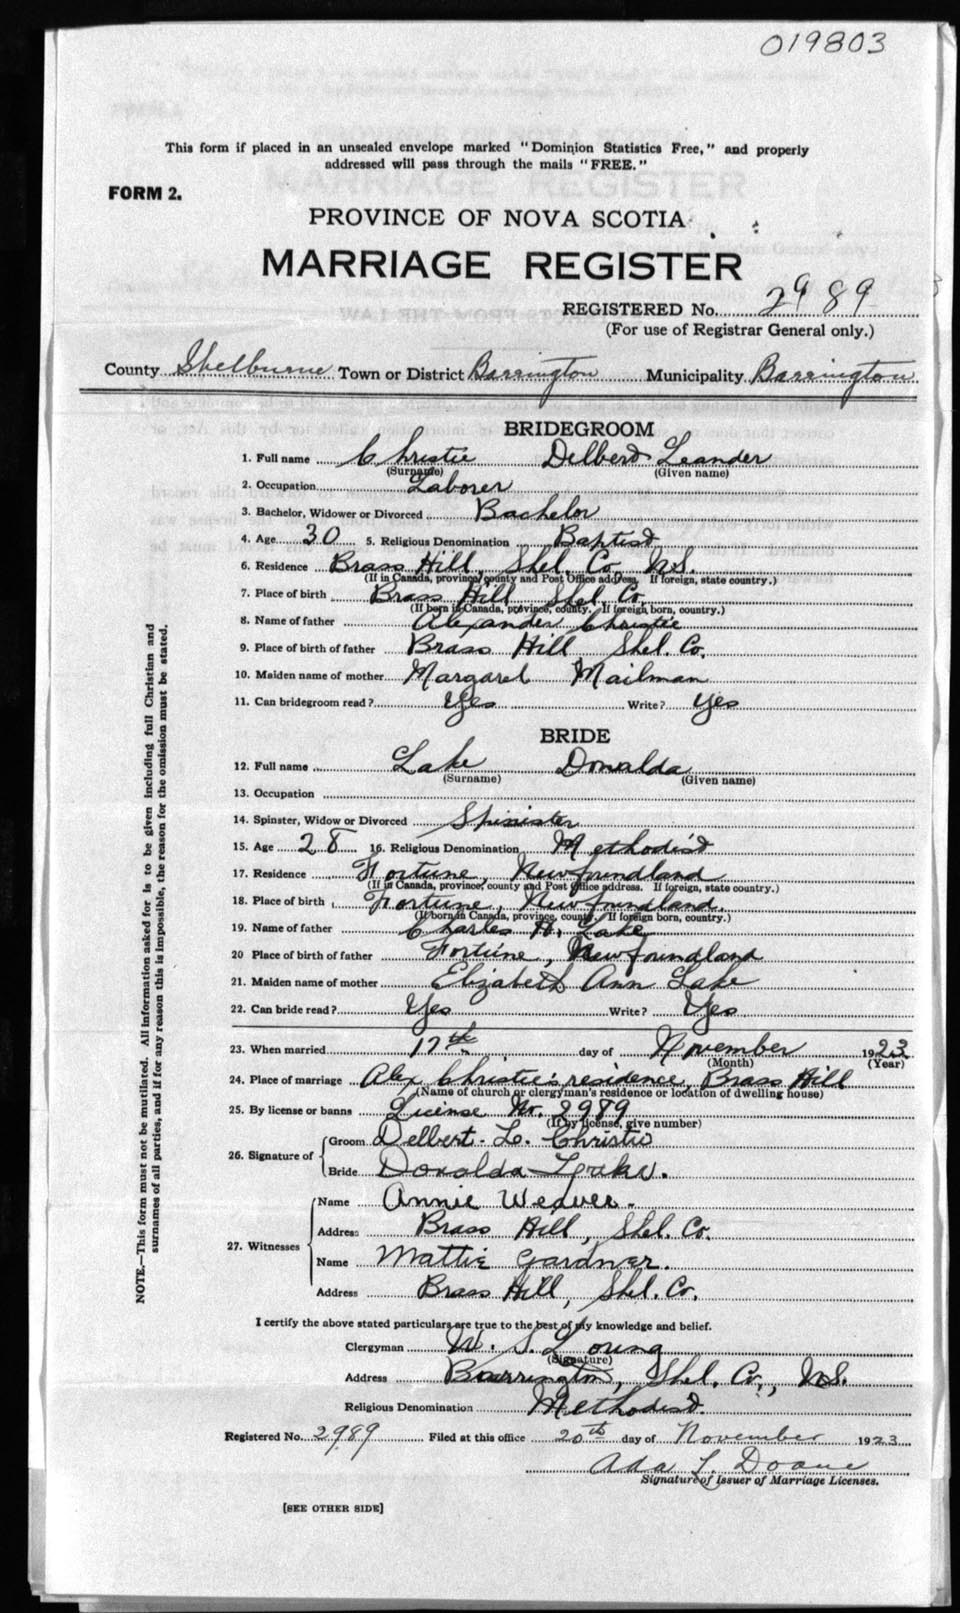 019803
This form if placed in an unsealed envelope marked "Dominion Statistics Free," and properly
addressed will pass through the mails "FREE."
FORM 2.
PROVINCE OF NOVA SCOTIA
MARRIAGE REGISTER
REGISTERED No. 2989
(For use of Registrar General only.)
County Shelburne Town or District Barrington Municipality Barrington
BRIDEGROOM
1. Full name Christie Delbert Leander
(Surname) (Given name)
2. Occupation Laborer
3. Bachelor, Widower or Divorced Bachelor
4. Age 30 5. Religious Denomination Baptist
6. Residence Brass Hill, Shel. Co. N.S.
(If in Canada, province, county and Post Office address. If foreign, state country.)
7. Place of birth Brass Hill Shel. Co.
(If born in Canada, province, county. If foreign born, country.)
8. Name of father Alexander Christie
9. Place of birth of father Brass Hill Shel. Co.
10. Maiden name of mother Margaret Mailman
11. Can bridegroom read? Yes Write? Yes
BRIDE
12. Full name Lake Donalda
(Surname) (Given name)
13. Occupation
14. Spinster, Widow or Divorced Spinister
15. Age 28 16. Religious Denomination Methodist
17. Residence Fortune, Newfoundland
(If in Canada, province, county and Post Office address. If foreign, state country.)
18. Place of birth Fortune, Newfoundland.
(If born in Canada, province, county. If foreign born, country.)
19. Name of father Charles H. Lake
20 Place of birth of father Fortune, Newfoundland
21. Maiden name of mother Elizabeth Ann Lake
22. Can bride read? Yes Write? Yes
23. When married 17th day of November 1923
(Month) (Year)
24. Place of marriage Alex Christie's residence, Brass Hill
(Name of church or clergyman's residence or location of dwelling house)
25. By license or banns License Nr. 2989
(If by license, give number)
26. Signature of Groom Delbert. L. Christie
Bride Donalda Lake.
27. Witnesses Name Annie Weaver.
Address Brass Hill, Shel. Co.
Name Mattie Gardner.
Address Brass Hill, Shel. Co.
I certify the above stated particulars are true to the best of my knowledge and belief.
Clergyman W. S. Young
(Signature)
Address Barrington, Shel. Co., N.S.
Religious Denomination Methodist.
Registered No. 2989 Filed at this office 20th day of November 1923
Ada L. Doane
Signature of Issuer of Marriage Licenses.
[SEE OTHER SIDE]
NOTE.—This form must not be mutilated. All information asked for is to be given including full Christian and
surnames of all parties, and if for any reason this is impossible, the reason for the omission must be stated.